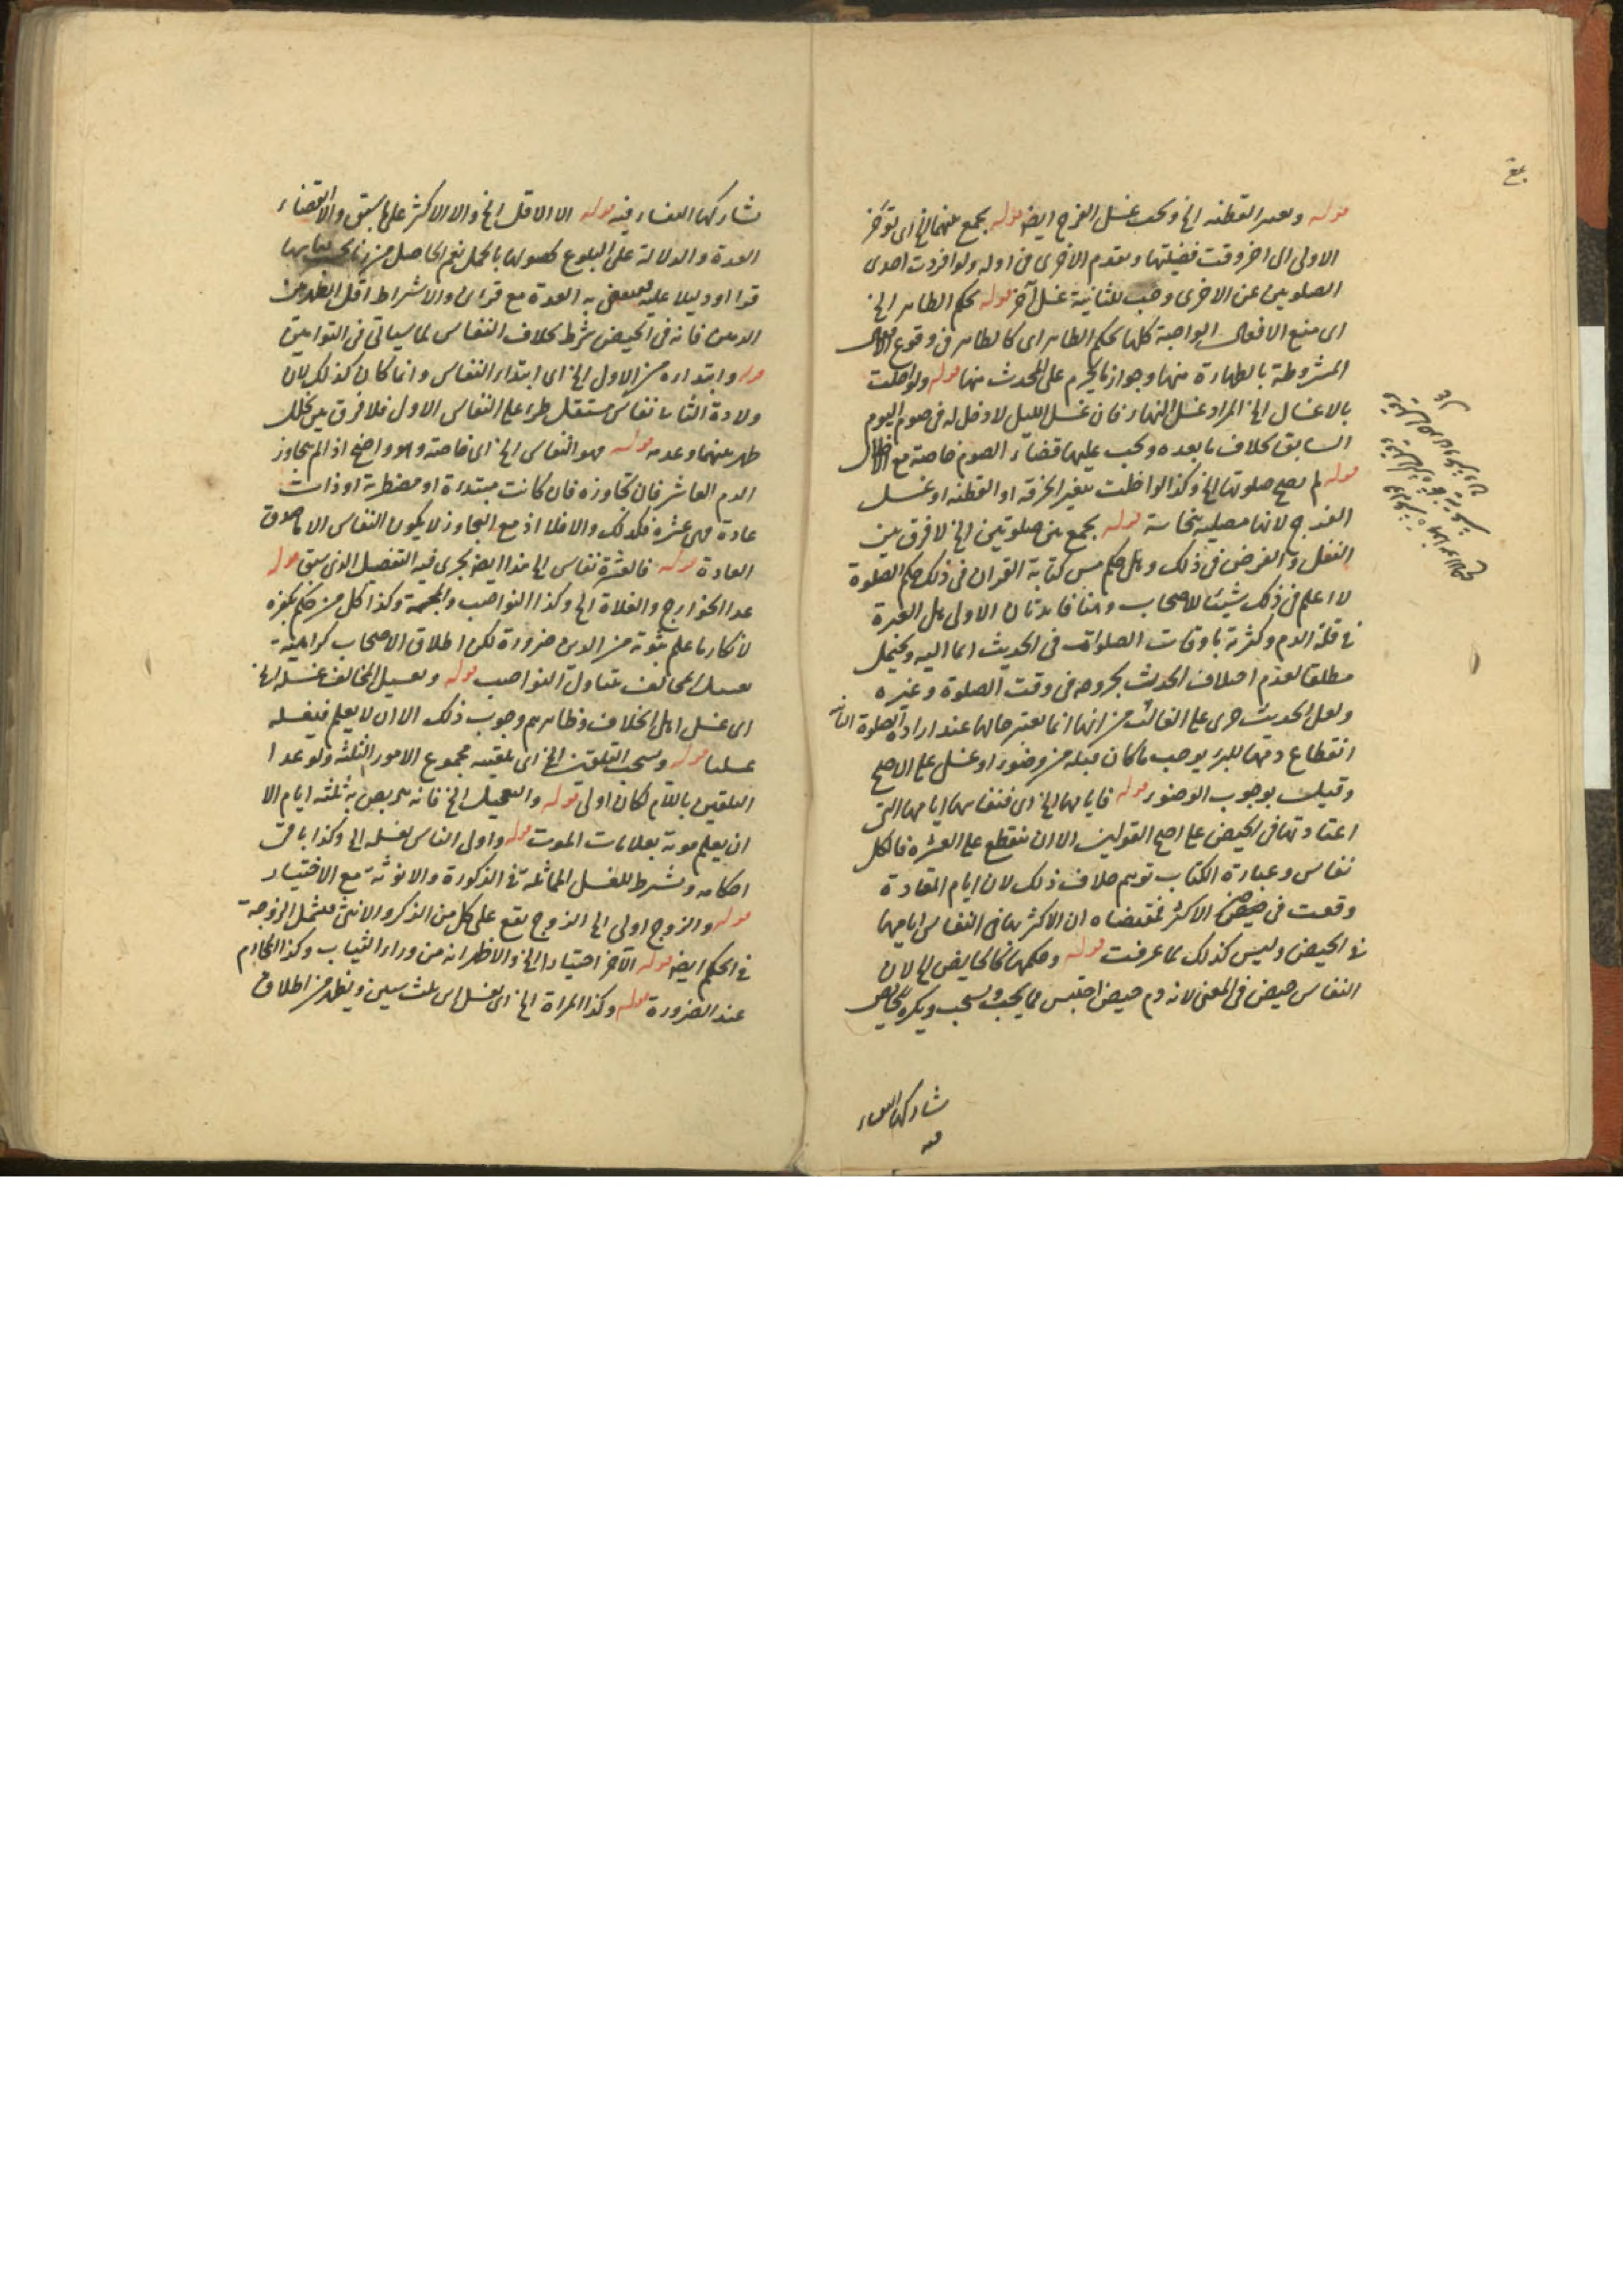 قوله وتغيير القطنه الخ ويجب غسل الفرج ايضا قوله يجمع بينهما الخ اى تؤخر
الاولى الى اخر وقت فضيلتها وتقدم الاخرى فى اوله ولو افردت احدى
الصلوتين عن الاخرى وجب للثانية غسل آخر قوله بحكم الطاهر الخ
اى مع الافعال الواجبة كلها بحكم الطاهر اى كالطاهر فى وقوع الافعال
المشروطة بالطهارة منها وجواز ما يحرم على المحدث منها قوله ولو اخلت
بالاغسال الخ المراد غسل النهار فان غسل الليل لا دخل له فى صوم اليوم
السابق بخلاف ما بعده ويجب عليها قضاء الصوم خاصة مع الاخلال
قوله لم يصح صلوتها الخ وكذا لو اخلت بتغيير الخرقه او القطنه او غسل
الفرج لانها مصليه بنجاسة قوله بجمع بين صلوتين الخ لا فرق بين
النفل والفرض فى ذلك وهل حكم مس كتابة القران فى ذلك حكم الصلوة
لا اعلم فى ذلك شيئا للاصحاب وهنا فايدتان الاولى هل العبرة
فى قلة الدم وكثرته باوقات الصلوات فى الحديث ايما اليه ويحتمل
مطلقا لعدم اختلاف الحدث بخروجه فى وقت الصلوة وغيره
ولعل الحديث جرى على الغالب من انها انما تعتبر حالها عند ارادة الصلوة الثانية
انقطاع دمها للبرء يوجب ما كان قبله من وضوء او غسل على الاصح
وقيل بوجوب الوضوء قوله فايامها الخ اى فنفاسها ايامها التى
اعتادتها فى الحيض على اصح القولين الا ان ينقطع على العشره فالكل
نفاس وعبارة الكتاب توهم خلاف ذلك لان ايام العادة
وقعت فى الاكثر فمقتضاه ان الاكثر هنا فى النفاس ايامها
فى الحيض وليس كذلك لما عرفت قوله وحكمها كالحايض الخ لان
النفاس حيض فى المعنى لانه دم حيض احتبس فما يجب ويستحب ويكره للحايض
تشاركها النفساء
فيه
تشاركها النفساء فيه قوله الا الاقل الخ والا الاكثر على ما سبق والا انقضاء
العدة والدلالة على البلوغ لحصولها بالحمل نعم الحاصل من زنا
قرءا او دليلا عليه به العدة مع قرأين والا اشتراط اقل الطهر بين
الدمين فانه فى الحيض شرط بخلاف النفاس لما سياتى فى التوامين
قوله وابتداءه من الاول الخ اى ابتداء النفاس وانما كان كذلك لان
ولادة الثانى نفاس مستقل طرء على النفاس الاول فلا فرق بين تخلل
طهر بينهما وعدمه قوله فهو النفاس الخ اى خاصته وهو واضح اذا لم يتجاوز
الدم العاشر فان تجاوزه فان كانت مبتداة او مضطربة او ذات
عادة هى عشرة فكذلك والا فلا اذ مع التجاوز لا يكون النفاس الا ما صدق
العادة قوله فالعشرة نفاس الخ هذا ايضا يجرى فيه التفصيل الذى سبق قوله
عدا الخوارج والغلاة الخ وكذا النواصب والمجسمة وكذا كل من حكم بكفره
لانكار ما علم ثبوته من الدين ضرورة لكن اطلاق الاصحاب كراهية
تغسيل المخالف يتناول النواصب قوله وتغسيل المخالف غسله الخ
اى غسل اهل الخلاف وظاهرهم وجوب ذلك الا ان لا يعلم فيغسله
غسلنا قوله ويستحب التلقين الخ اى تلقينه مجموع الامور الثلثه ولو عدا
التلقين باللام لكان اولى قوله والتعجيل الخ فانه يتربص به ثلثه ايام الا
ان يعلم موته بعلامات الموت قوله واولى الناس بغسله الخ وكذا باقى
احكامه ويشترط للغسل المماثلة فى الذكورة والانوثة مع الاختيار
قوله والزوج اولى الخ الزوج يقع على كل من الذكر والانثى فتشمل الزوجة
فى الحكم ايضا قوله الآخر اختيارا الخ والاظهر انه من وراء الثياب وكذا المحارم
عند الضرورة قوله وكذا المراة الخ اى تغسل ابن ثلث سنين ويظهر من اطلاق